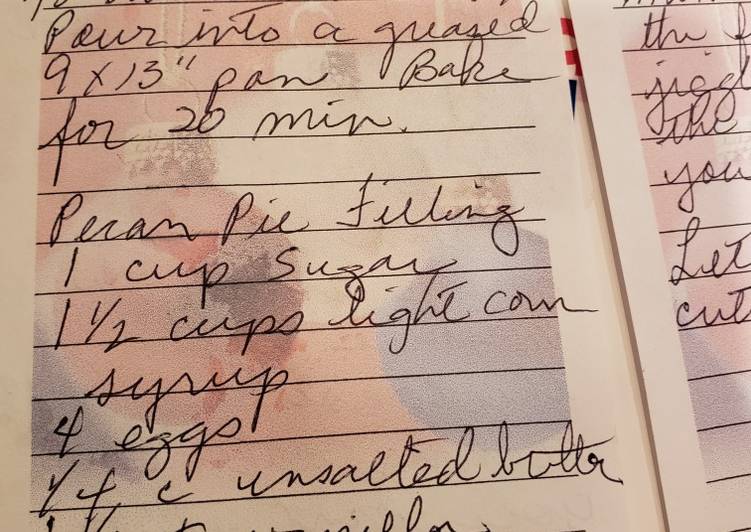 Pour into a greased
9 x 13" pan Bake
for 20 min.
Pecan Pie Filling
1 cup Sugar
1 1/2 cups light corn
syrup
4 eggs
1/4 c unsalted butter
the
you
Let
cut